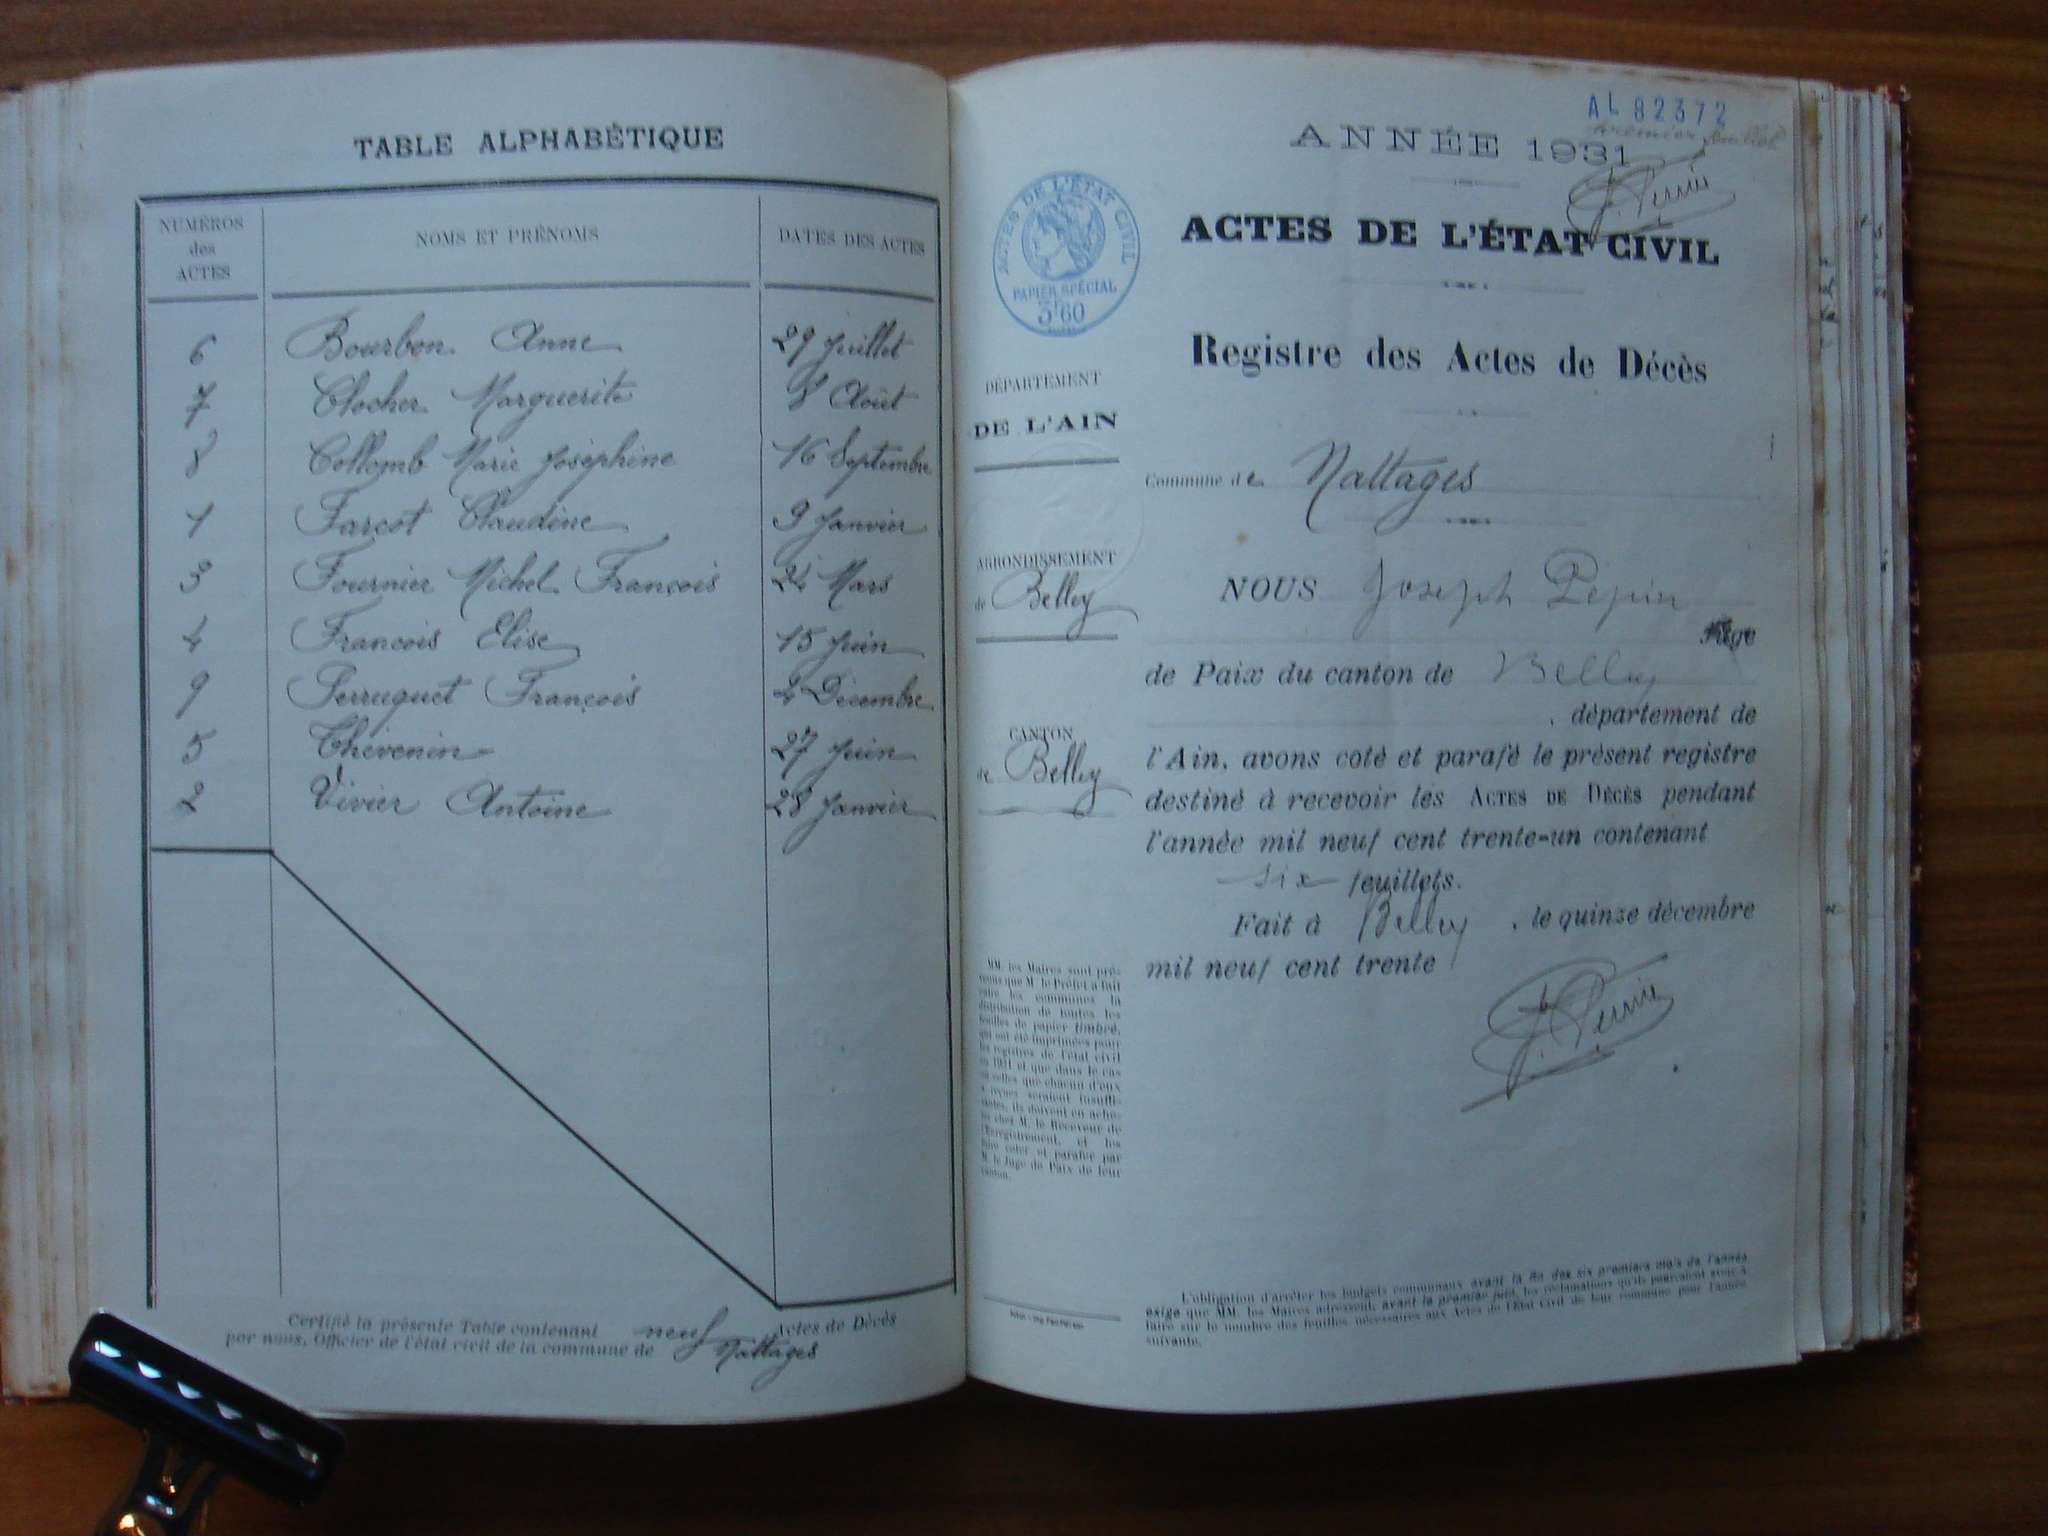 TABLE ALPHABÉTIQUE
NUMÉROS des ACTES NOMS ET PRÉNOMS DATES DES ACTES
6 Bourbon Anne 29 Juillet
7 Clocher Marguerite 8 Août
8 Collomb Marie Joséphine 16 Septembre
1 Farçot Claudine 9 Janvier
3 Fournier Michel François 24 Mars
4 Francois Elise 15 Juin
9 Perruquet François 2 Décembre
5 Thévenin 27 Juin
2 Vivier Antoine 28 Janvier
Certifié la présente Table contenant neuf Actes de Décès
par nous, Officier de l'état civil de la commune de Nattages
AL 82372
premier feuillet
ANNÉE 1931
ACTES DE L'ÉTAT CIVIL
PAPIER SPÉCIAL
3f60
ACTES DE L'ÉTAT CIVIL
Registre des Actes de Décès
DÉPARTEMENT
DE L'AIN
Commune de Nattages
ARRONDISSEMENT
de Belley
CANTON
de Belley
NOUS Joseph Pépin
Juge
de Paix du canton de Belley
, département de
l'Ain, avons coté et parafé le présent registre
destiné à recevoir les ACTES DE DÉCÈS pendant
l'année mil neuf cent trente-un contenant
six feuillets.
Fait à Belley, le quinze décembre
mil neuf cent trente
MM. les Maires sont pré-
venus que M. le Préfet a fait
entre les communes la
distribution de toutes les
feuilles de papier timbré,
qui ont été imprimées pour
les registres de l'état civil
en 1931 et que dans le cas
où celles que chacun d'eux
a reçues seraient insuffi-
santes, ils doivent en ache-
ter chez M. le Receveur de
l'Enregistrement, et les
faire coter et parafer par
M. le Juge de Paix de leur
canton.
L'obligation d'arrêter les budgets communaux avant la fin des six premiers mois de l'année
exige que MM. les Maires adressent, avant le premier juin, les réclamations qu'ils pourraient avoir à
faire sur le nombre des feuilles nécessaires aux Actes de l'État Civil de leur commune pour l'année
suivante.